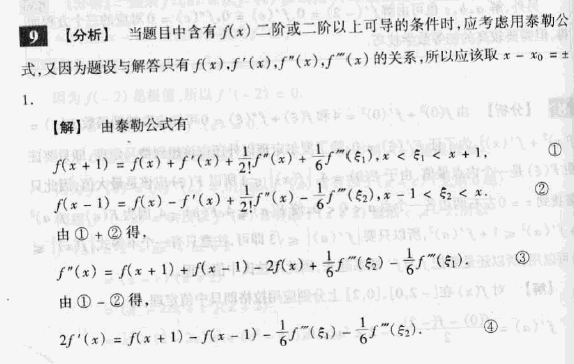 9 【分析】 当题目中含有 f(x) 二阶或二阶以上可导的条件时,应考虑用泰勒公
式,又因为题设与解答只有 f(x),f′(x),f″(x),f‴(x) 的关系,所以应该取 x - x₀ = ±
1.
【解】 由泰勒公式有
f(x + 1) = f(x) + f′(x) + 1/2! f″(x) + 1/6 f‴(ξ₁),x < ξ₁ < x + 1, ①
f(x - 1) = f(x) - f′(x) + 1/2! f″(x) - 1/6 f‴(ξ₂),x - 1 < ξ₂ < x. ②
由 ① + ② 得,
f″(x) = f(x + 1) + f(x - 1) - 2f(x) + 1/6 f‴(ξ₂) - 1/6 f‴(ξ₁). ③
由 ① - ② 得,
2f′(x) = f(x + 1) - f(x - 1) - 1/6 f‴(ξ₁) - 1/6 f‴(ξ₂). ④